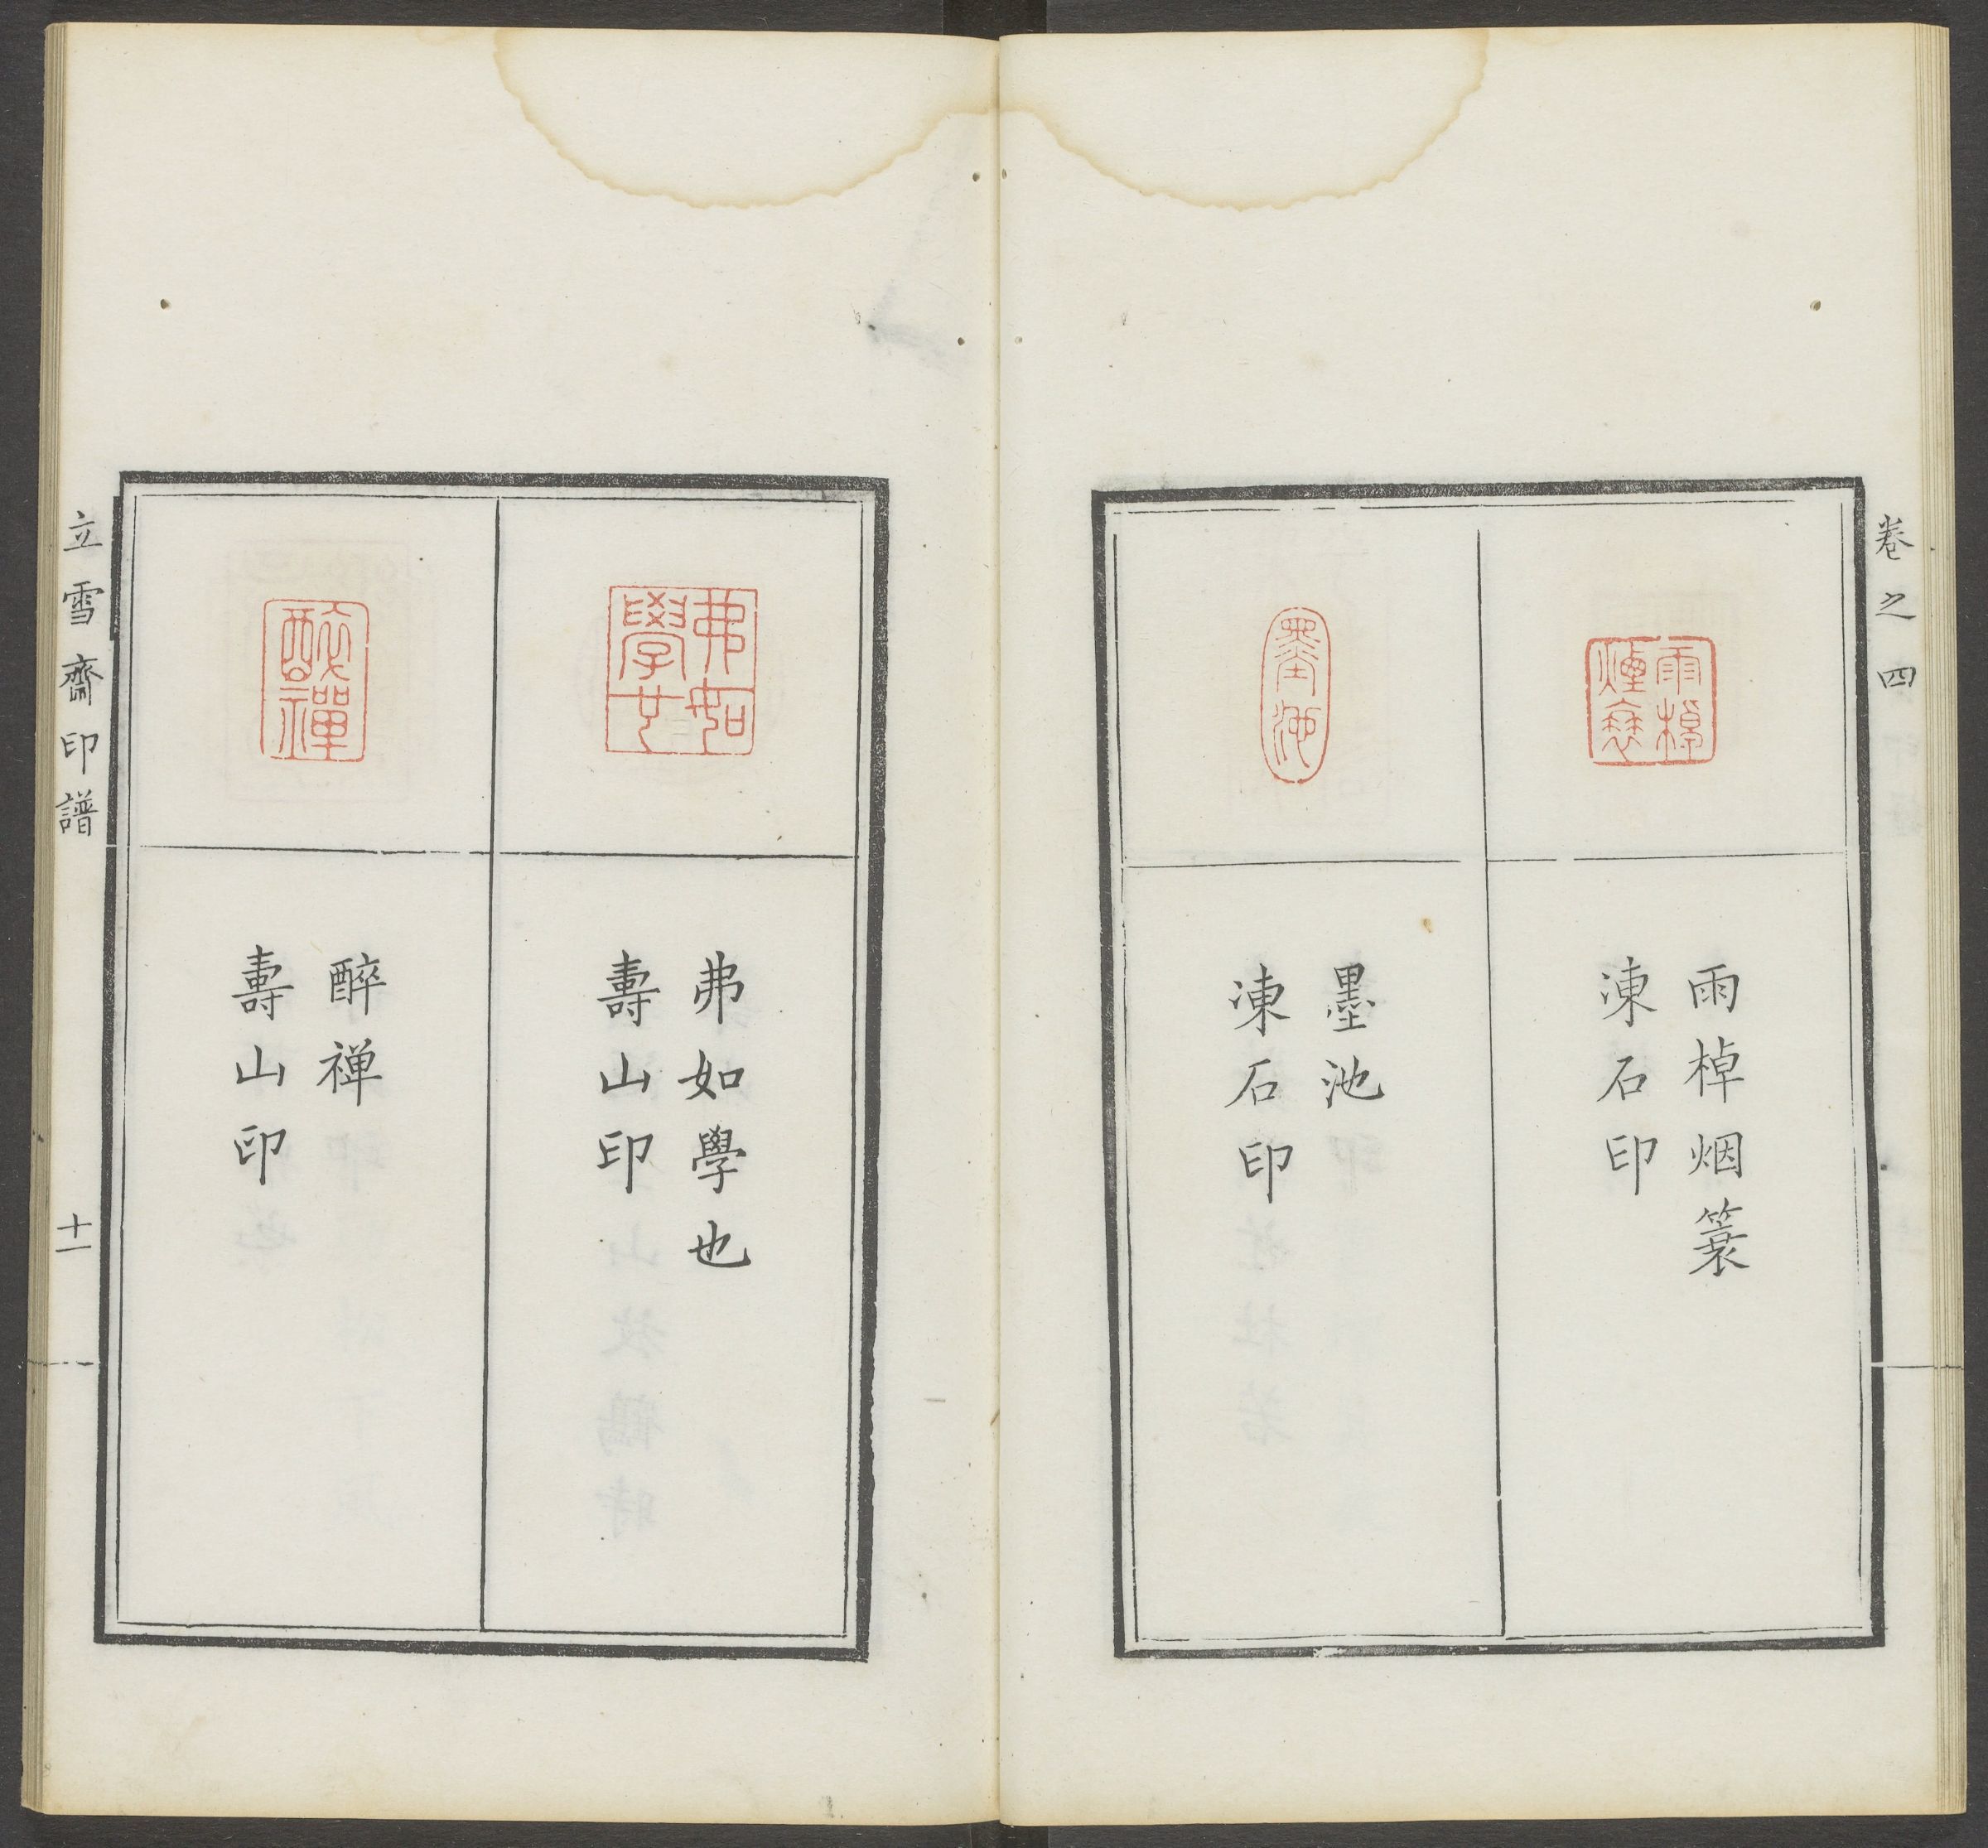 卷之四
雨棹煙蓑
雨棹烟簑
凍石印
墨池
墨池
凍石印
弗如學也
弗如學也
壽山印
醉禪
醉禅
壽山印
立雪齋印譜
十一